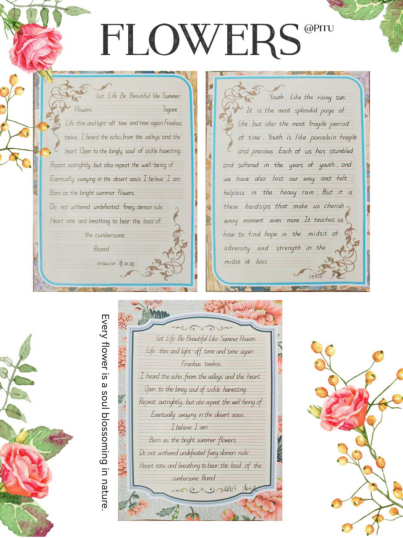 FLOWERS @PITU
Let Life Be Beautiful like Summer
Flowers Tagore
Life, thin and light-off time and time again Frivolous
tireless I heard the echo, from the valleys and the
heart Open to the lonely soul of sickle harvesting
Repeat outrightly, but also repeat the well-being of
Eventually swaying in the desert oasis I believe I am
Born as the bright summer flowers
Do not withered undefeated fiery demon rule
Heart rate and breathing to bear the load of
the cumbersome
Bored
Youth, like the rising sun.
It is the most splendid page of
life, but also the most fragile period
of time. Youth is like porcelain fragile
and precious. Each of us has stumbled
and suffered in the years of youth, and
we have also lost our way and felt
helpless in the heavy rain. But it is
these hardships that make us cherish
every moment even more. It teaches us
how to find hope in the midst of
adversity and strength in the
midst of loss.
Let Life Be Beautiful Like Summer Flowers
Life, thin and light-off time and time again
Frivolous tireless
I heard the echo, from the valleys and the heart
Open to the lonely soul of sickle harvesting
Repeat outrightly, but also repeat the well-being of
Eventually swaying in the desert oasis
I believe I am
Born as the bright summer flowers
Do not withered undefeated fiery demon rule
Heart rate and breathing to bear the load of the
cumbersome Bored
Every flower is a soul blossoming in nature.